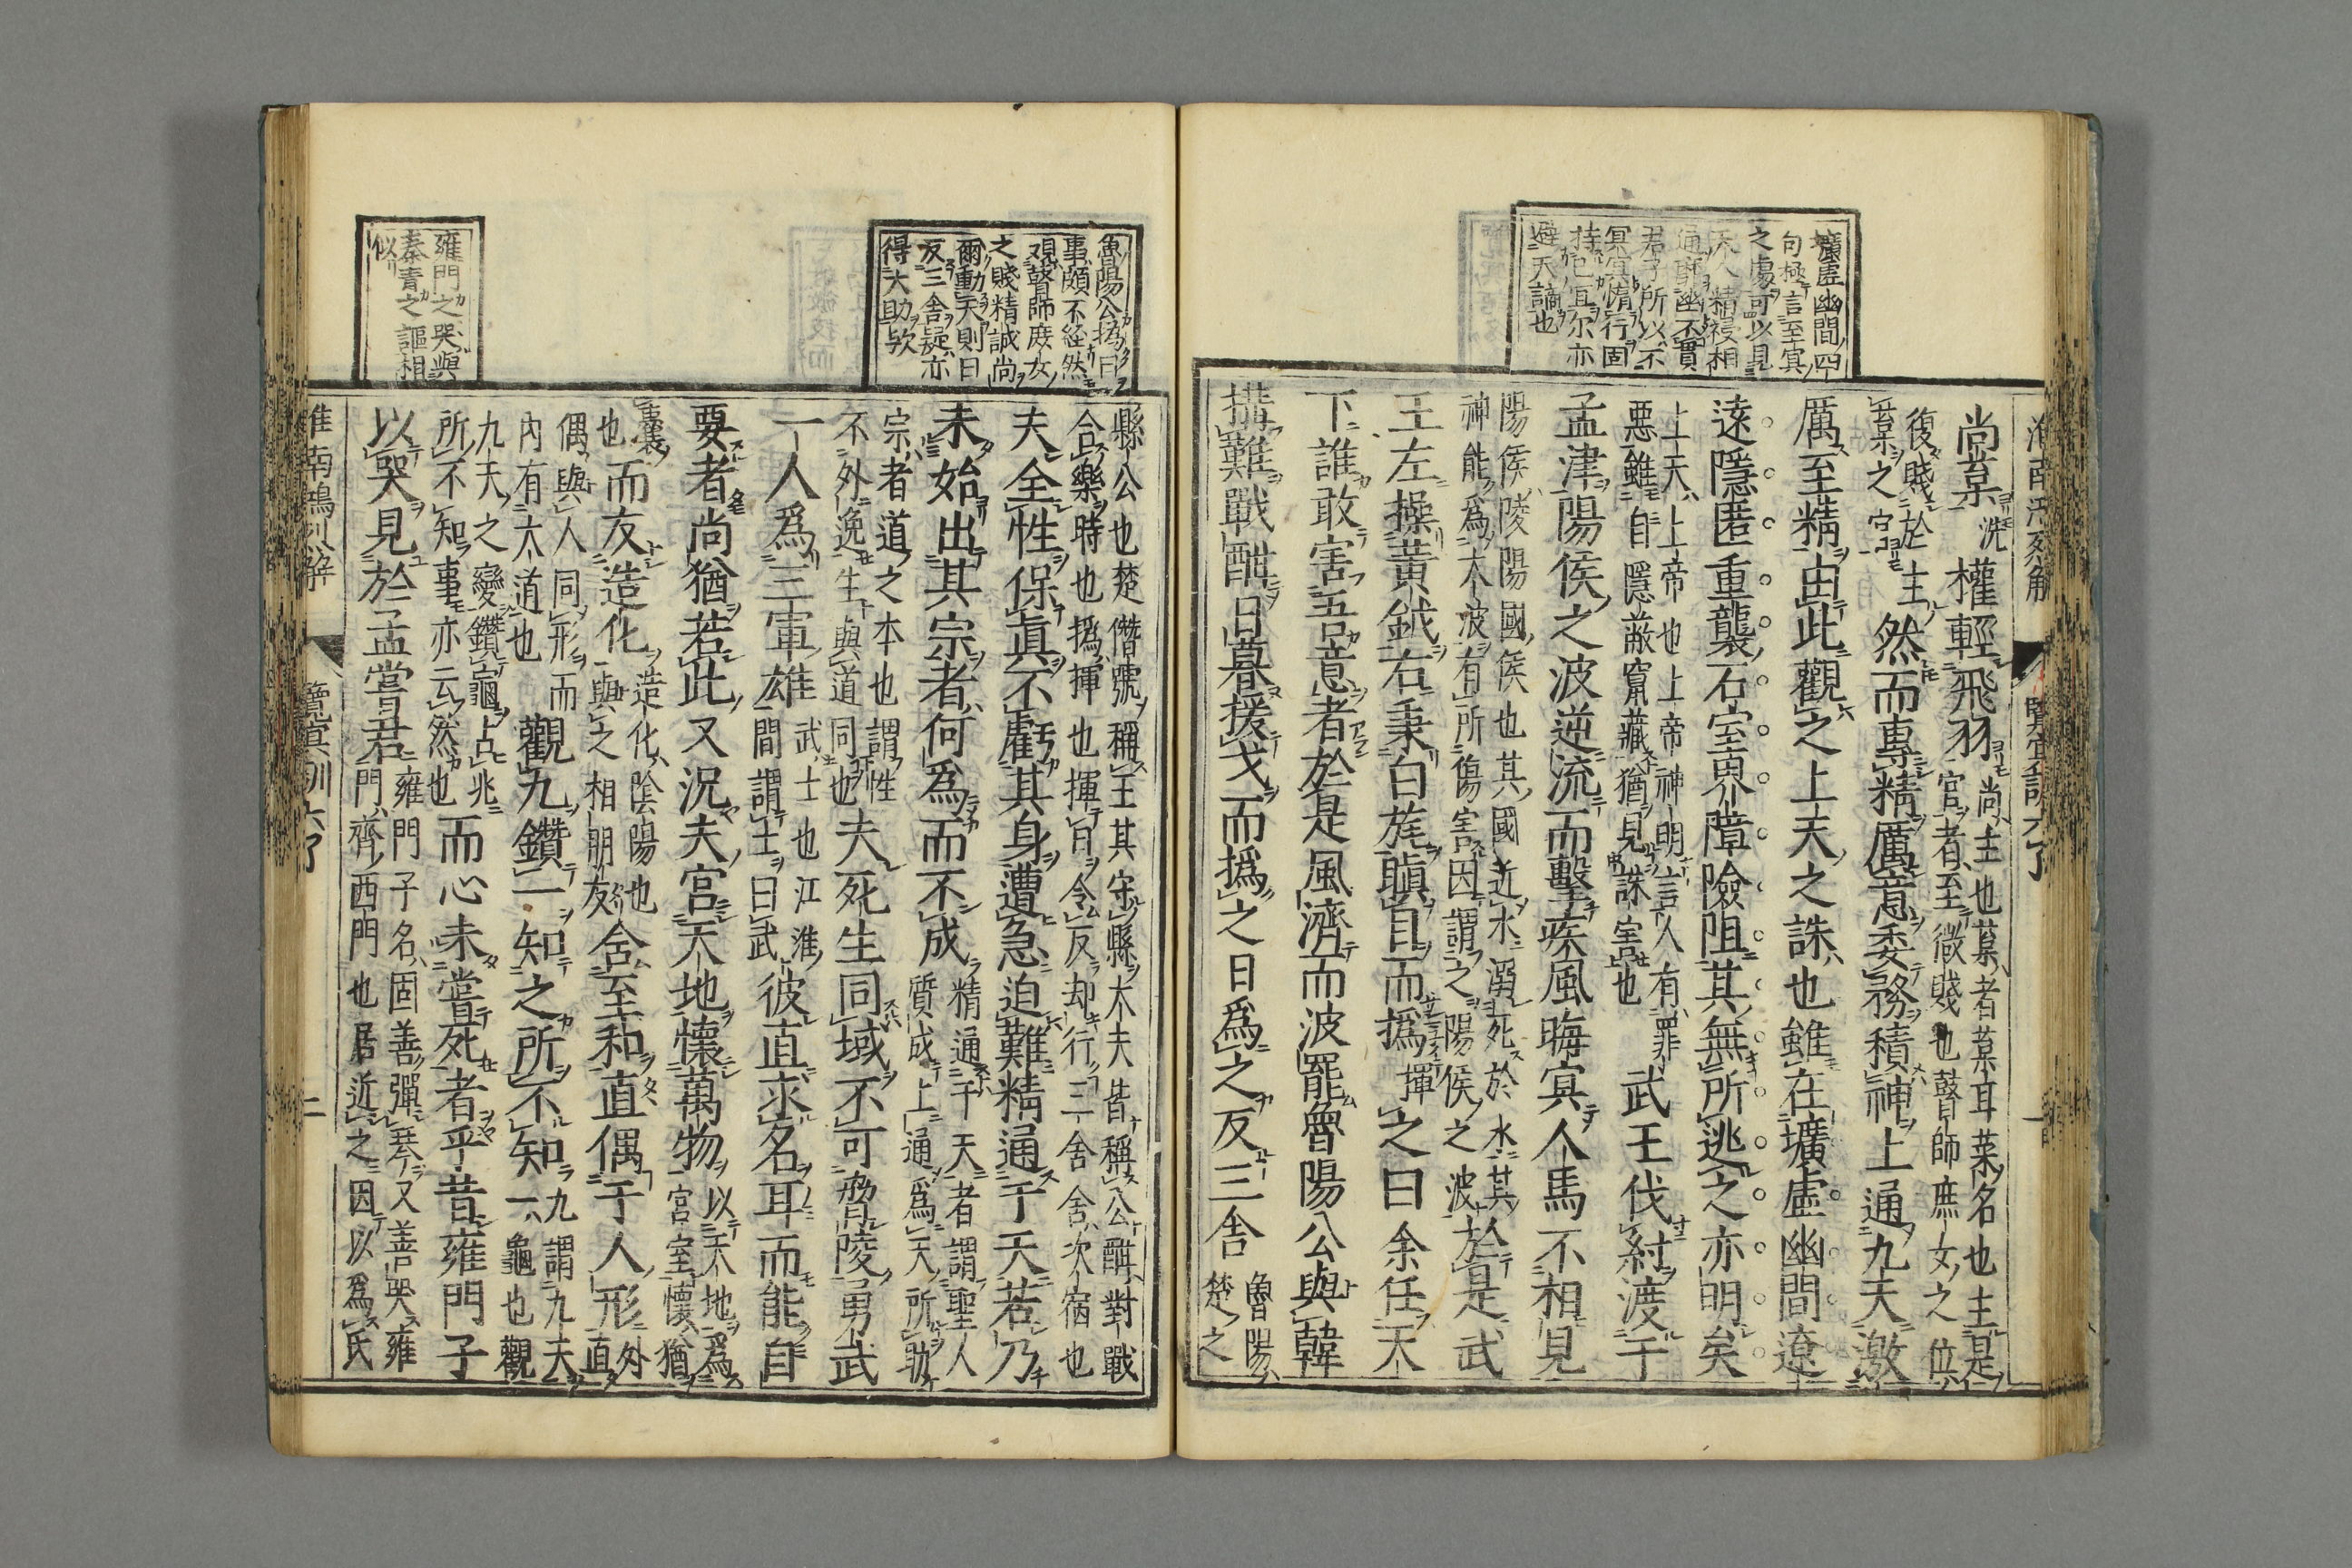 壙虛幽間四
句極言至冥
之處可以見
天人精祲相
通寡幽不貫
君子所以不
冥冥惰行固
持己宜尓亦
避天謫也
尚葈洗權輕飛羽尚主也葈者葈耳菜名也主是
官者至微賤也瞽師庶女之位
復賤於主
葈之官然而專精厲意委務積神上通九天激
厲至精由此觀之上天之誅也雖在壙虛幽間遼
遠隱匿重襲石室界障險阻其無所逃之亦明矣
上天上帝也上帝神明言人有罪
惡雖自隱蔽竄藏猶見誅害也武王伐紂渡于
孟津陽侯之波逆流而擊疾風晦冥人馬不相見
陽侯陵陽國侯也其國近水溺死於水其
神能為大波有所傷害因謂之陽侯之波於是武
王左操黃鉞右秉白旄瞋目而撝揮之曰余任天
下誰敢害吾意者於是風濟而波罷魯陽公與韓
搆難戰酣日暮援戈而撝之日為之反三舍魯陽
楚之
魯陽公撝日
事頗不経然
覌瞽師庶女
之賤精誠尚
爾動天則日
反三舍疑亦
得天助欤
雍門之哭與
秦青之謳相
似
縣公也楚僭號稱王其守縣大夫皆稱公酣對戰
合樂時也撝揮也揮日令反却行三舍舍次宿也
夫全性保真不虧其身遭急迫難精通于天若乃
未始出其宗者何為而不成精通于天者謂聖人
質成上通為天所助
宗者道之本也謂性
不外逸生與道同也夫死生同域不可脅陵勇武
一人為三軍雄武士也江淮
間謂士曰武彼直求名耳而能自
要者尚猶若此又況夫宮天地懷萬物以天地為
宮室懷猶
囊
也而友造化造化陰陽也
與之相朋友含至和直偶于人形外
直
偶與人同形而
內有大道也觀九鑽一知之所不知九謂九天
一龜也觀
九天之變鑽龜占兆
所不知事亦云然也而心未嘗死者乎昔雍門子
以哭見於孟嘗君雍門子名固善彈琴又善哭雍
門齊西門也居近之因以為氏
淮南鴻列解
覽冥訓六
二